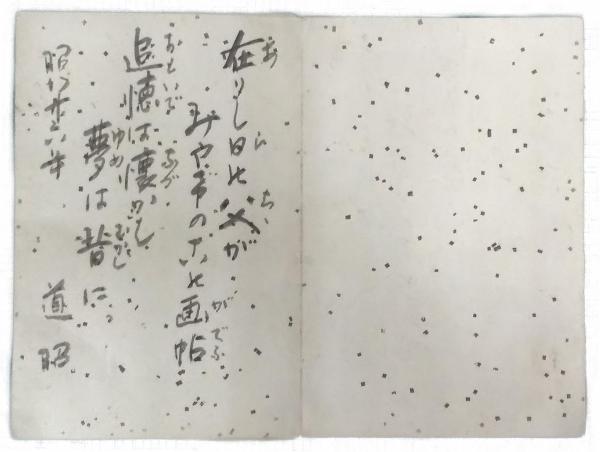 在りし日の父が
みやげのこの画帖
追憶は懐かし
夢は昔に
昭和 年 道昭